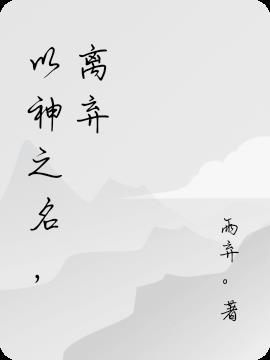 以神之名，
离弃
雨弃。著